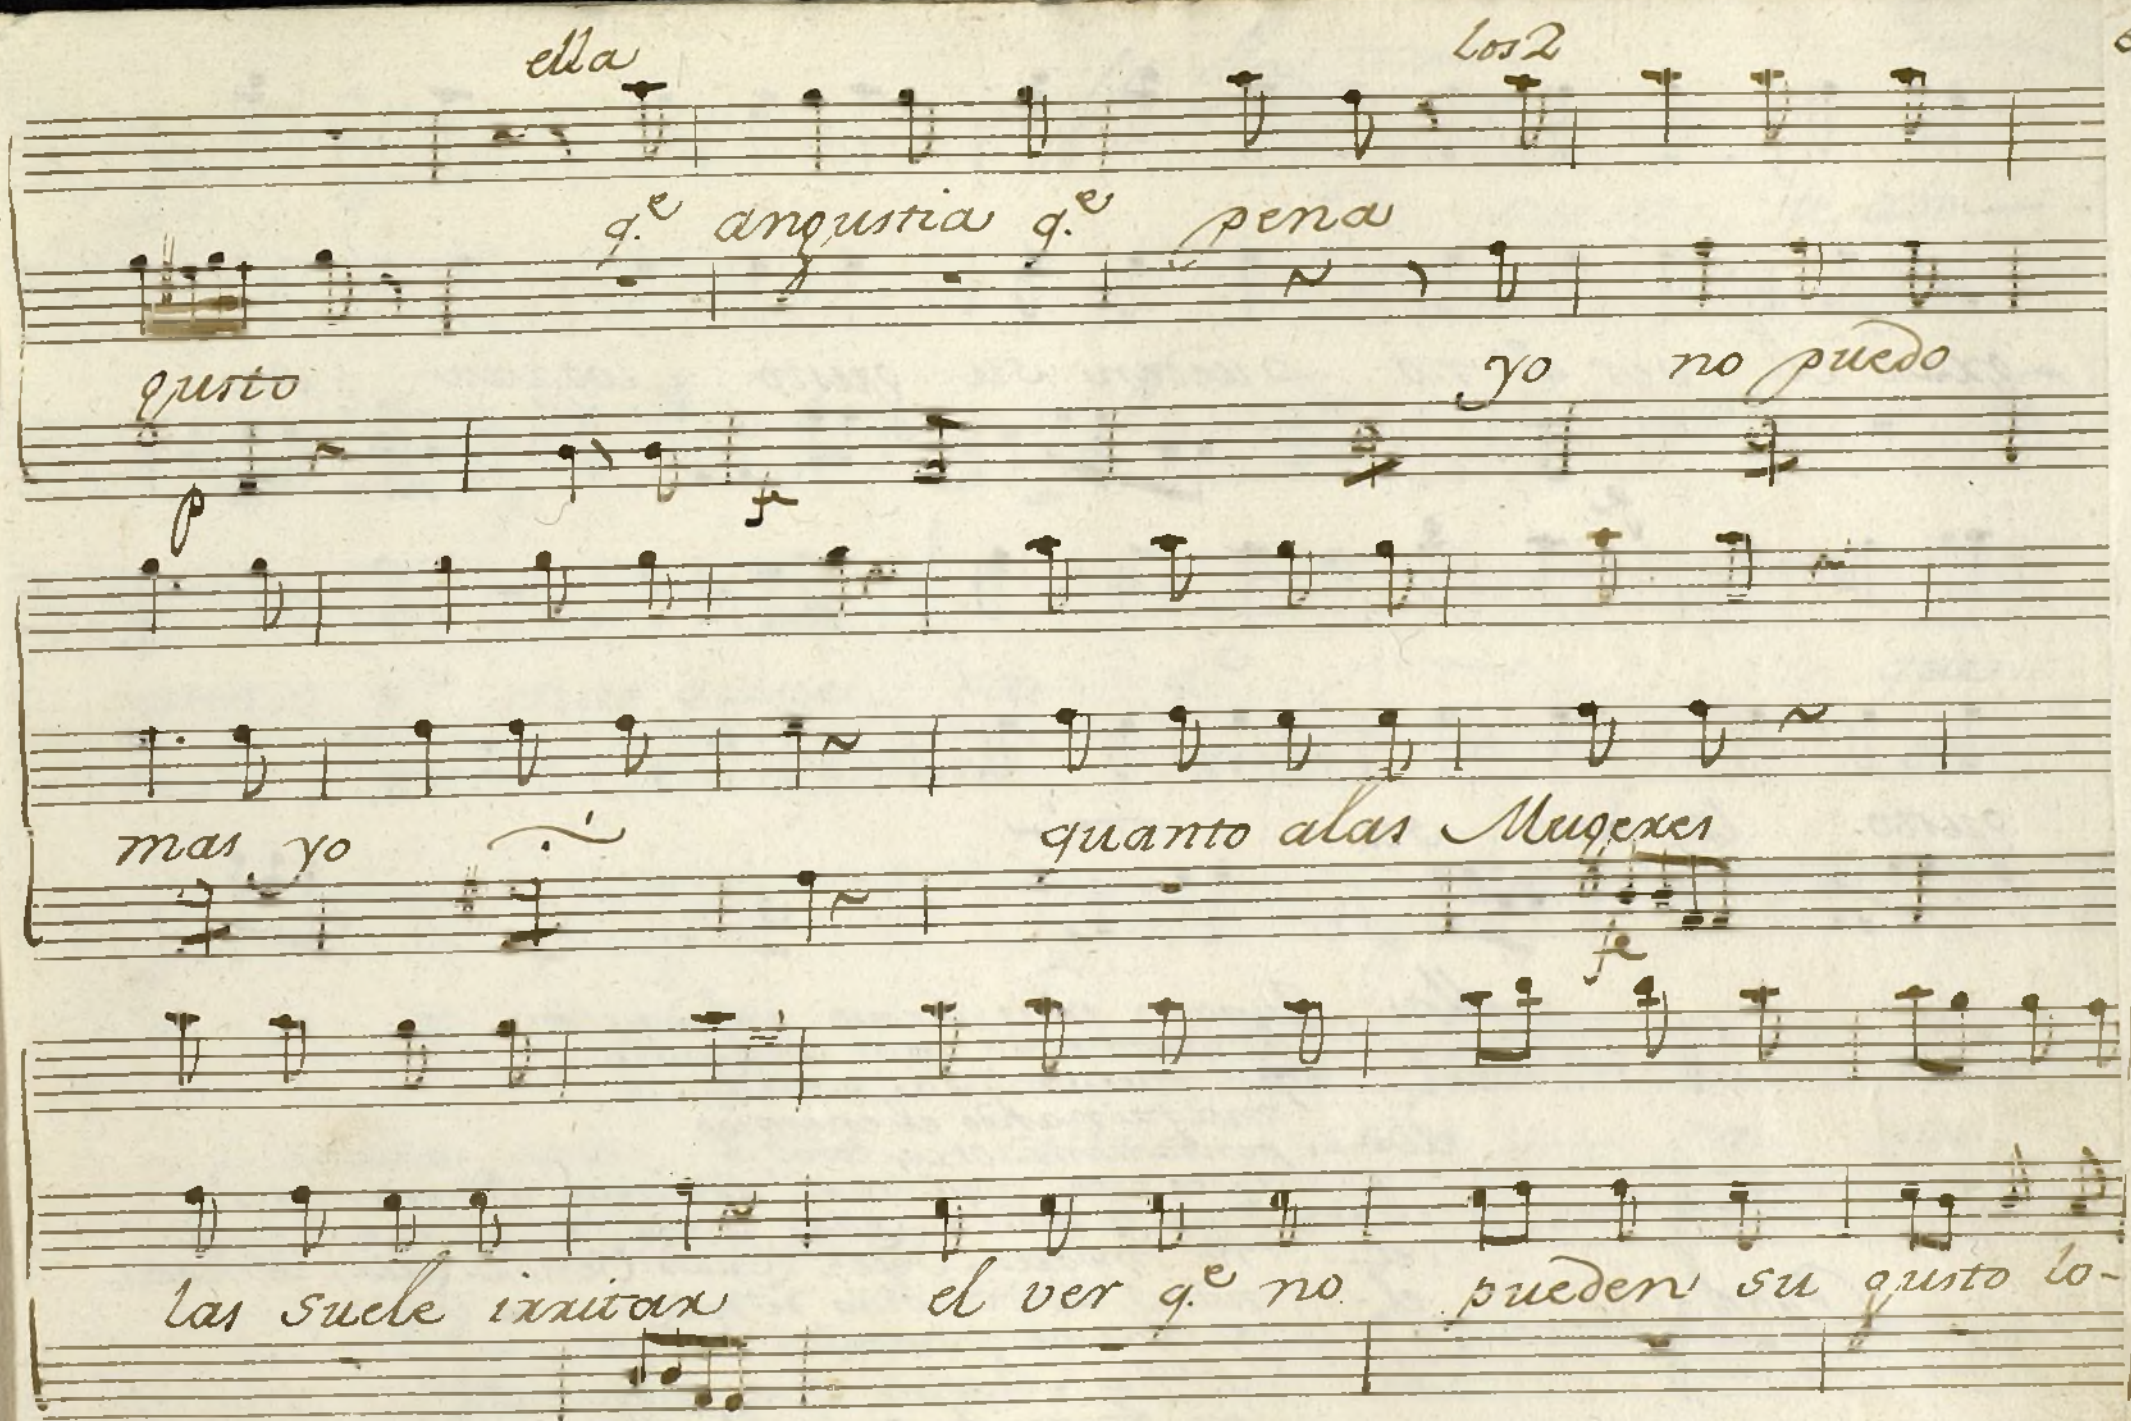 ella los 2
q.e angustia q.e pena
gusto yo no puedo
p fe
mas yo quanto alas Mugeres
fe
las suele irritar el ver q.e no pueden su gusto lo-